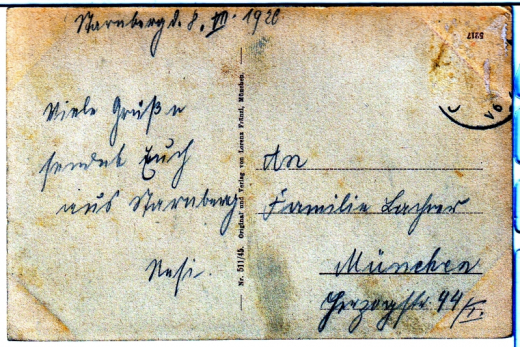 Starnberg d. 8. VII. 1920
Viele Grüße
sendet Euch
aus Starnberg
Resi.
Nr. 511/45. Original und Verlag von Lorenz Fränzl, München.
5217
An
Familie Lachner
München
Herzogstr. 44/I.